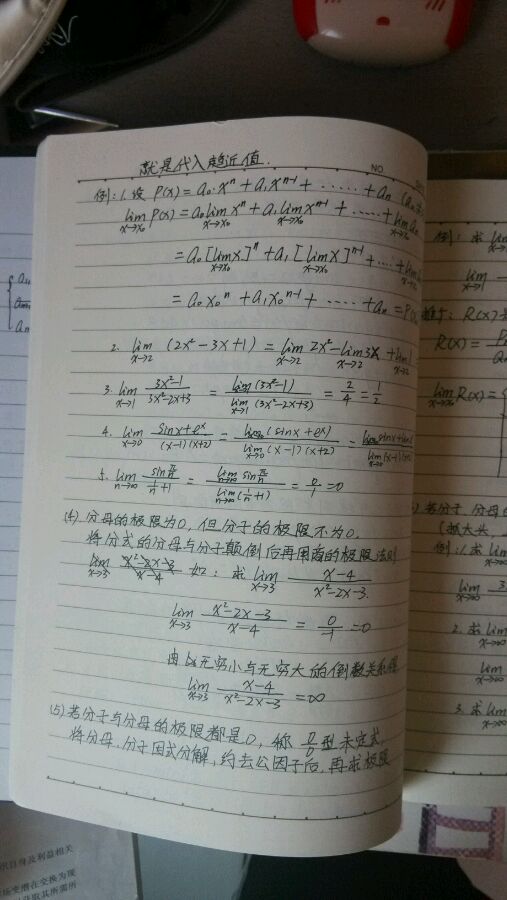 就是代入趋近值.
NO.
例:1.设 P(x)=a₀·xⁿ+a₁xⁿ⁻¹+……+aₙ (a₀
lim x→x₀ P(x)=a₀ lim x→x₀ xⁿ+a₁ lim x→x₀ xⁿ⁻¹+……+lim x→x₀ aₙ
=a₀[lim x→x₀ x]ⁿ+a₁[lim x→x₀ x]ⁿ⁻¹+……+lim x→x₀
=a₀x₀ⁿ+a₁x₀ⁿ⁻¹+……+aₙ=P(x₀
2. lim x→2 (2x²-3x+1)=lim x→2 2x²-lim x→2 3x+lim x→2 1
3. lim x→1 (3x²-1)/(3x²-2x+3) = lim x→1 (3x²-1)/lim x→1 (3x²-2x+3) = 2/4 = 1/2
4. lim x→0 (sinx+eˣ)/((x-1)(x+2)) = lim x→0 (sinx+eˣ)/lim x→0 (x-1)(x+2) =
5. lim n→∞ sin π/n/(1/n+1) = lim n→∞ sin π/n/lim n→∞ (1/n+1) = 0/1 =0
(4) 分母的极限为0, 但分子的极限不为0,
将分式的分母与分子颠倒后再用商的极限法则
如: 求 lim x→3 (x-4)/(x²-2x-3)
lim x→3 (x²-2x-3)/(x-4) = 0/-1 =0
由 无穷小与无穷大的倒数关系得
lim x→3 (x-4)/(x²-2x-3) =∞
(5) 若分子与分母的极限都是0, 称 0/0 型未定式
将分母.分子因式分解, 约去公因子后, 再求极限
例: 求 lim
lim x→1
R(x)
R(x)=
lim x→x₀ R(x)=
若分子.分母
(抓大头,
例:1.求 lim
lim x→∞ 3
2. 求 lim x→∞
lim x→∞
3. 求 lim x→∞
示自身及利益相关